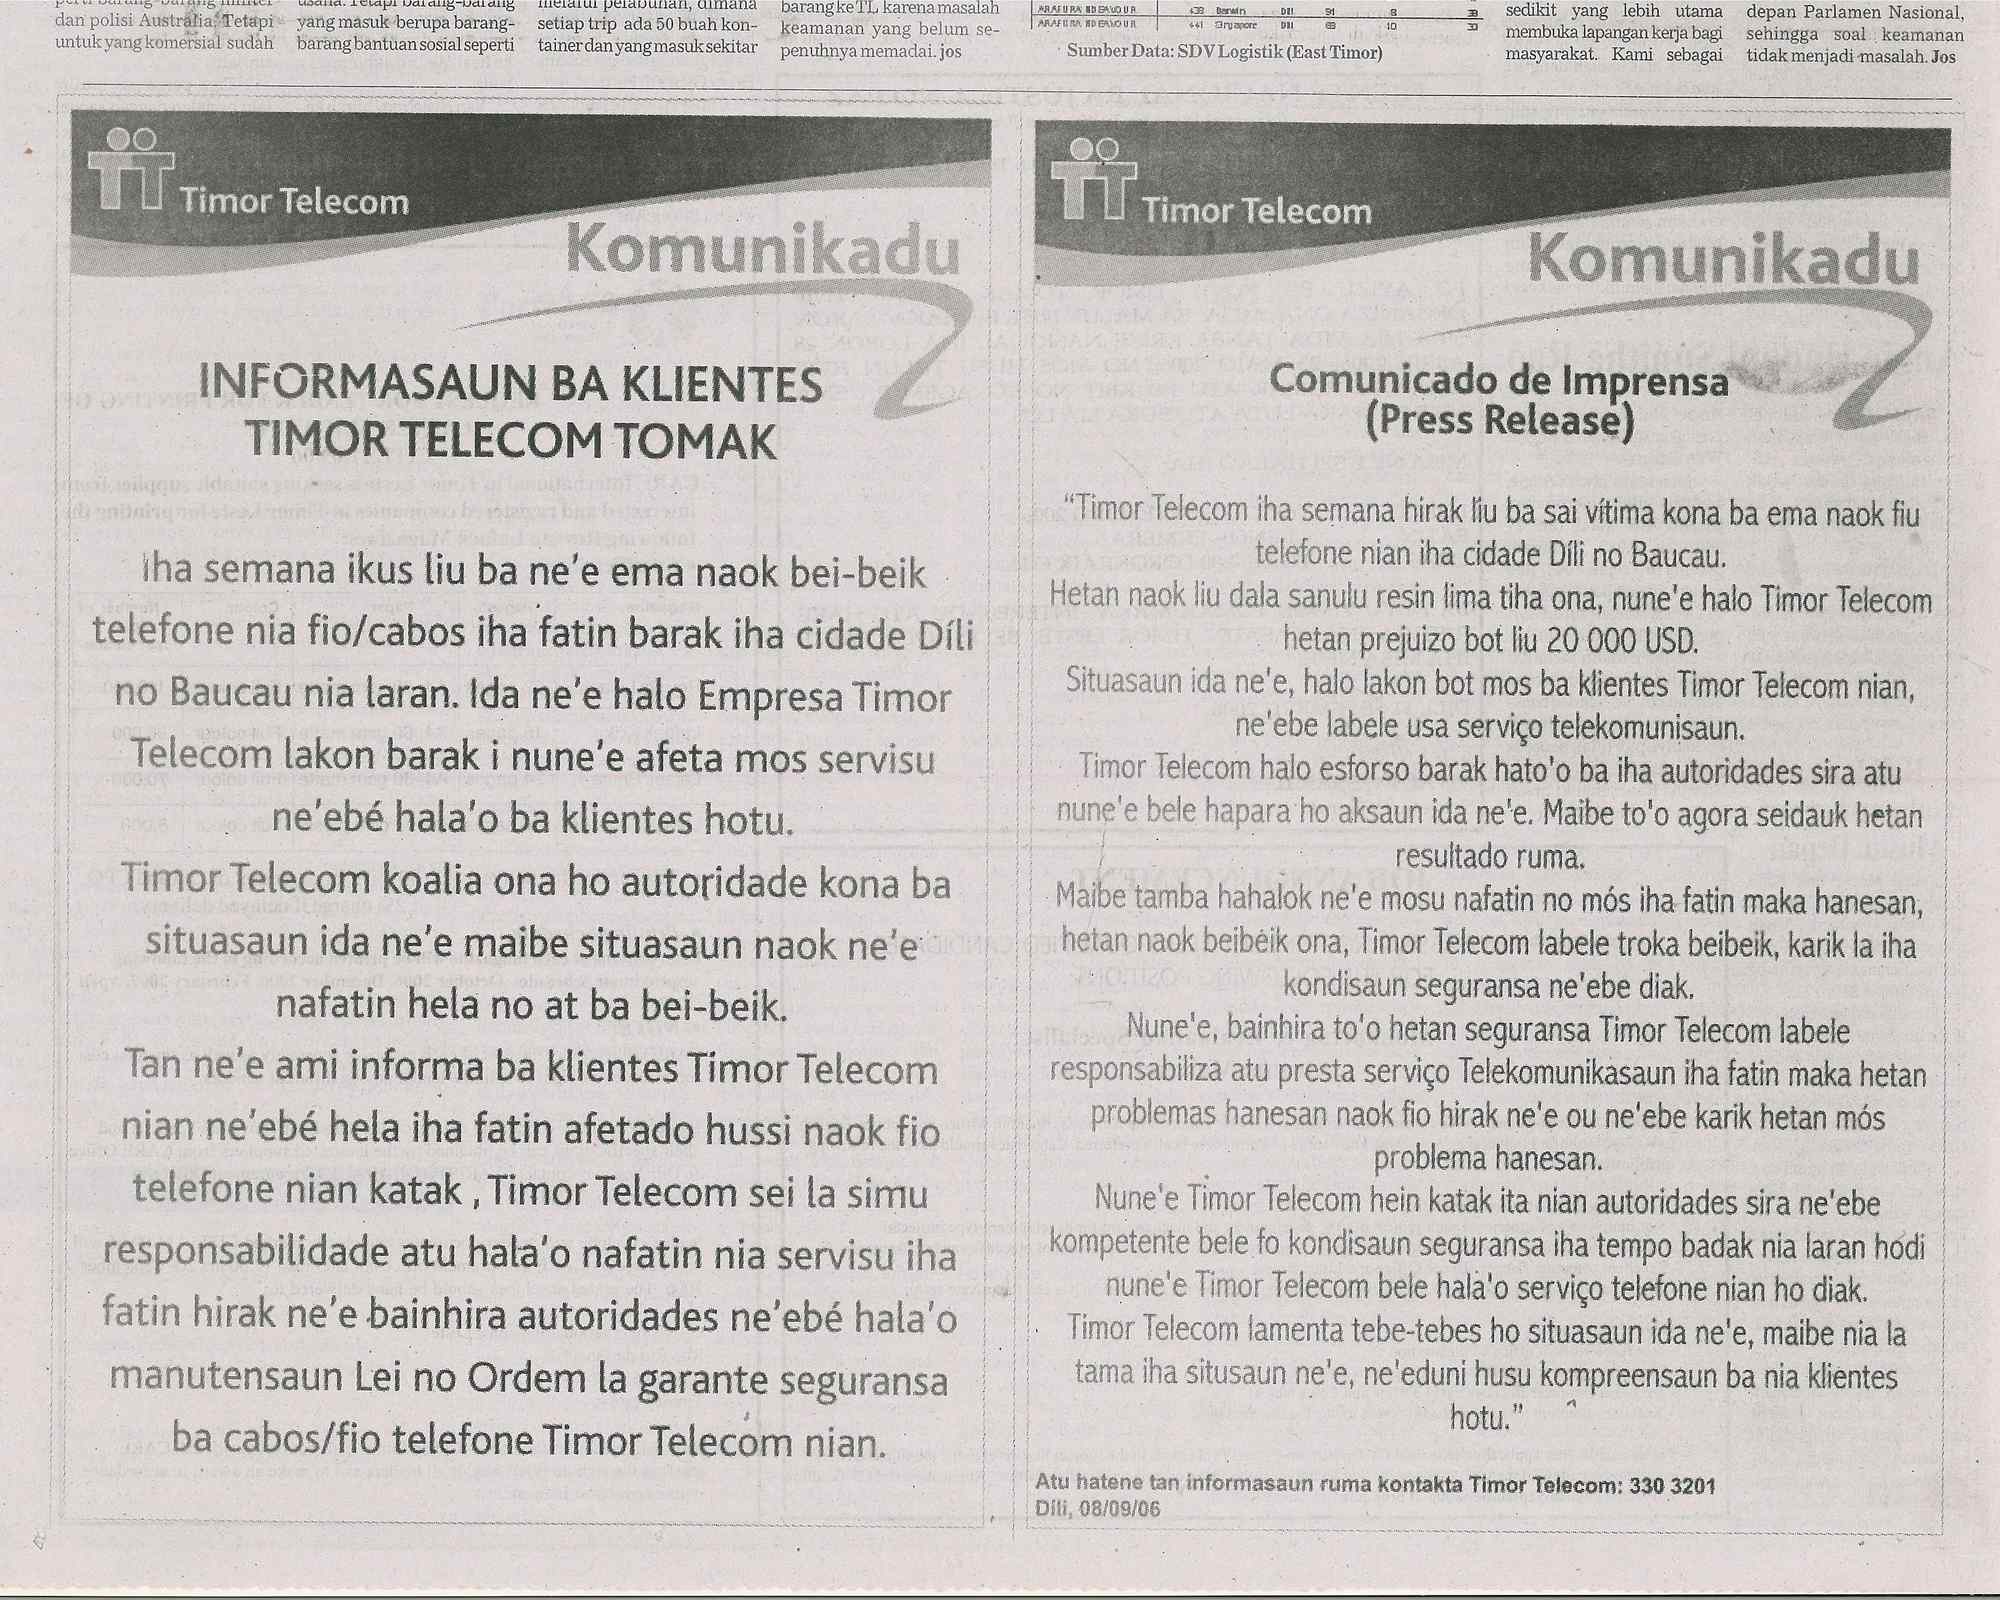 dan polisi Australia. Tetapi
untuk yang komersial sudah
yang masuk berupa barang-
barang bantuan sosial seperti
setiap trip ada 50 buah kon-
tainer dan yang masuk sekitar
barang ke TL karena masalah
keamanan yang belum se-
penuhnya memadai. jos
ARAFURA ENDEAVOUR 441 Singapore Dili
Sumber Data: SDV Logistik (East Timor)
sedikit yang lebih utama
membuka lapangan kerja bagi
masyarakat. Kami sebagai
depan Parlamen Nasional,
sehingga soal keamanan
tidak menjadi masalah. Jos
Timor Telecom
Komunikadu
INFORMASAUN BA KLIENTES
TIMOR TELECOM TOMAK
Iha semana ikus liu ba ne'e ema naok bei-beik
telefone nia fio/cabos iha fatin barak iha cidade Díli
no Baucau nia laran. Ida ne'e halo Empresa Timor
Telecom lakon barak i nune'e afeta mos servisu
ne'ebé hala'o ba klientes hotu.
Timor Telecom koalia ona ho autoridade kona ba
situasaun ida ne'e maibe situasaun naok ne'e
nafatin hela no at ba bei-beik.
Tan ne'e ami informa ba klientes Timor Telecom
nian ne'ebé hela iha fatin afetado hussi naok fio
telefone nian katak , Timor Telecom sei la simu
responsabilidade atu hala'o nafatin nia servisu iha
fatin hirak ne'e bainhira autoridades ne'ebé hala'o
manutensaun Lei no Ordem la garante seguransa
ba cabos/fio telefone Timor Telecom nian.
Timor Telecom
Komunikadu
Comunicado de Imprensa
(Press Release)
“Timor Telecom iha semana hirak liu ba sai vítima kona ba ema naok fiu
telefone nian iha cidade Díli no Baucau.
Hetan naok liu dala sanulu resin lima tiha ona, nune'e halo Timor Telecom
hetan prejuizo bot liu 20 000 USD.
Situasaun ida ne'e, halo lakon bot mos ba klientes Timor Telecom nian,
ne'ebe labele usa serviço telekomunisaun.
Timor Telecom halo esforso barak hato'o ba iha autoridades sira atu
nune'e bele hapara ho aksaun ida ne'e. Maibe to'o agora seidauk hetan
resultado ruma.
Maibe tamba hahalok ne'e mosu nafatin no mós iha fatin maka hanesan,
hetan naok beibeik ona, Timor Telecom labele troka beibeik, karik la iha
kondisaun seguransa ne'ebe diak.
Nune'e, bainhira to'o hetan seguransa Timor Telecom labele
responsabiliza atu presta serviço Telekomunikasaun iha fatin maka hetan
problemas hanesan naok fio hirak ne'e ou ne'ebe karik hetan mós
problema hanesan.
Nune'e Timor Telecom hein katak ita nian autoridades sira ne'ebe
kompetente bele fo kondisaun seguransa iha tempo badak nia laran hodi
nune'e Timor Telecom bele hala'o serviço telefone nian ho diak.
Timor Telecom lamenta tebe-tebes ho situasaun ida ne'e, maibe nia la
tama iha situsaun ne'e, ne'eduni husu kompreensaun ba nia klientes
hotu.”
Atu hatene tan informasaun ruma kontakta Timor Telecom: 330 3201
Díli, 08/09/06